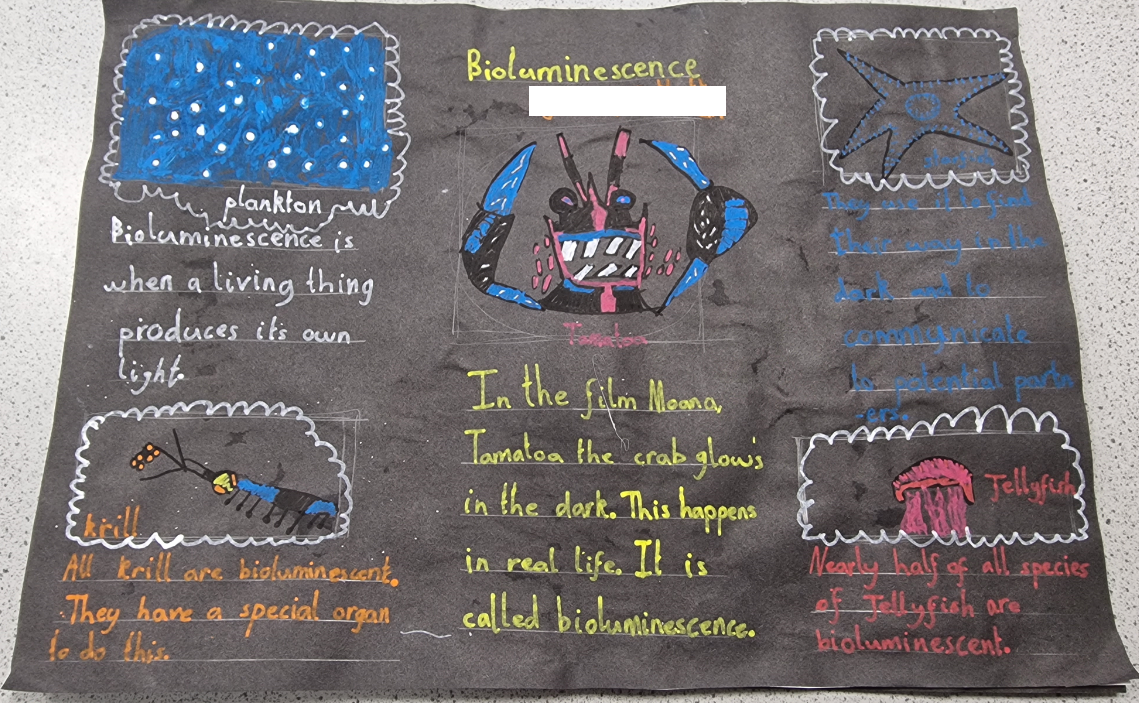 Bioluminescence
plankton
Bioluminescence is
when a living thing
produces it's own
light.
krill
All krill are bioluminescent.
They have a special organ
to do this.
Tamatoa
In the film Moana,
Tamatoa the crab glows
in the dark. This happens
in real life. It is
called bioluminescence.
starfish
They use it to find
their way in the
dark and to
communicate
to potential partn
-ers.
Jellyfish
Nearly half of all species
of Jellyfish are
bioluminescent.